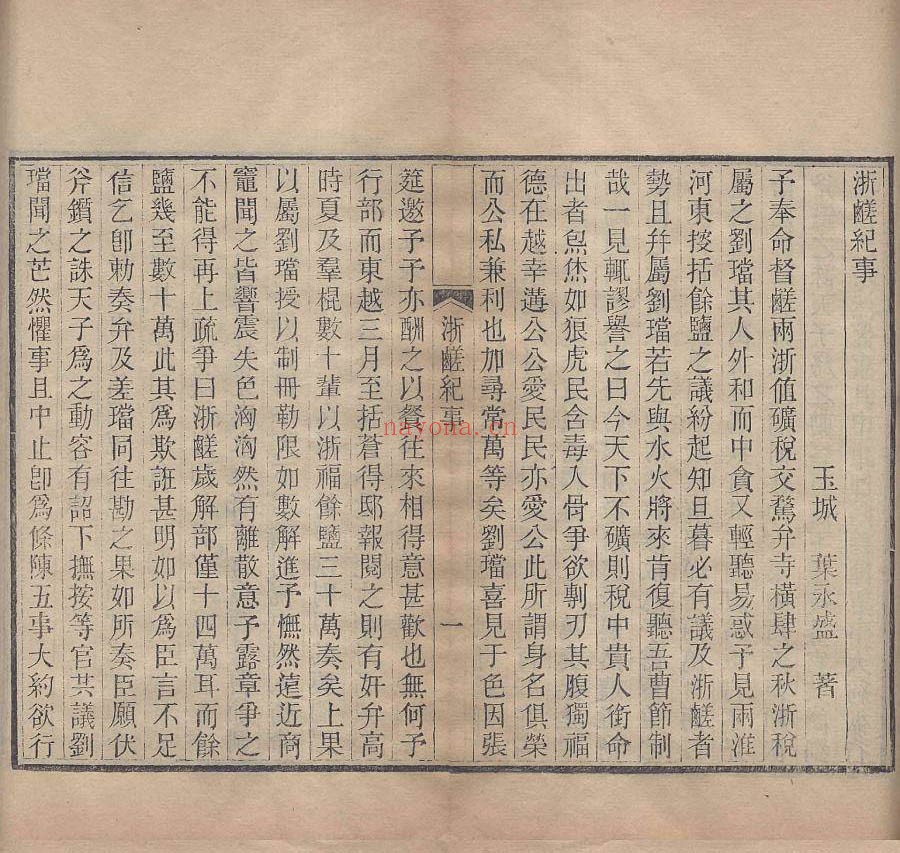 浙鹺紀事
玉城 葉永盛 著
予奉命督鹺兩浙值礦稅交騖弁寺橫肆之秋浙稅
屬之劉璫其人外和而中貪又輕聽易惑予見兩淮
河東搜括餘鹽之議紛起知旦暮必有議及浙鹺者
勢且幷屬劉璫若先與水火將來肯復聽吾曹節制
哉一見輒謬譽之曰今天下不礦則稅中貴人銜命
出者炰烋如狼虎民含毒入骨爭欲剚刃其腹獨福
德在越幸遘公公愛民民亦愛公此所謂身名俱榮
而公私兼利也加尋常萬等矣劉璫喜見于色因張
浙鹺紀事 一
筵邀予予亦酬之以餐往來相得意甚歡也無何予
行部而東越三月至括蒼得邸報閱之則有奸弁高
時夏及羣棍數十輩以浙福餘鹽三十萬奏矣上果
以屬劉璫授以制冊勒限如數解進予憮然薳近商
竈聞之皆響震失色洶洶然有離散意予露章爭之
不能得再上疏爭曰浙鹺歲解部僅十四萬耳而餘
鹽幾至數十萬此其爲欺誑甚明如以爲臣言不足
信乞卽勅奏弁及差璫同往勘之果如所奏臣願伏
斧鑕之誅天子爲之動容有詔下撫按等官共議劉
璫聞之茫然懼事且中止卽爲條陳五事大約欲行
nayona.cn